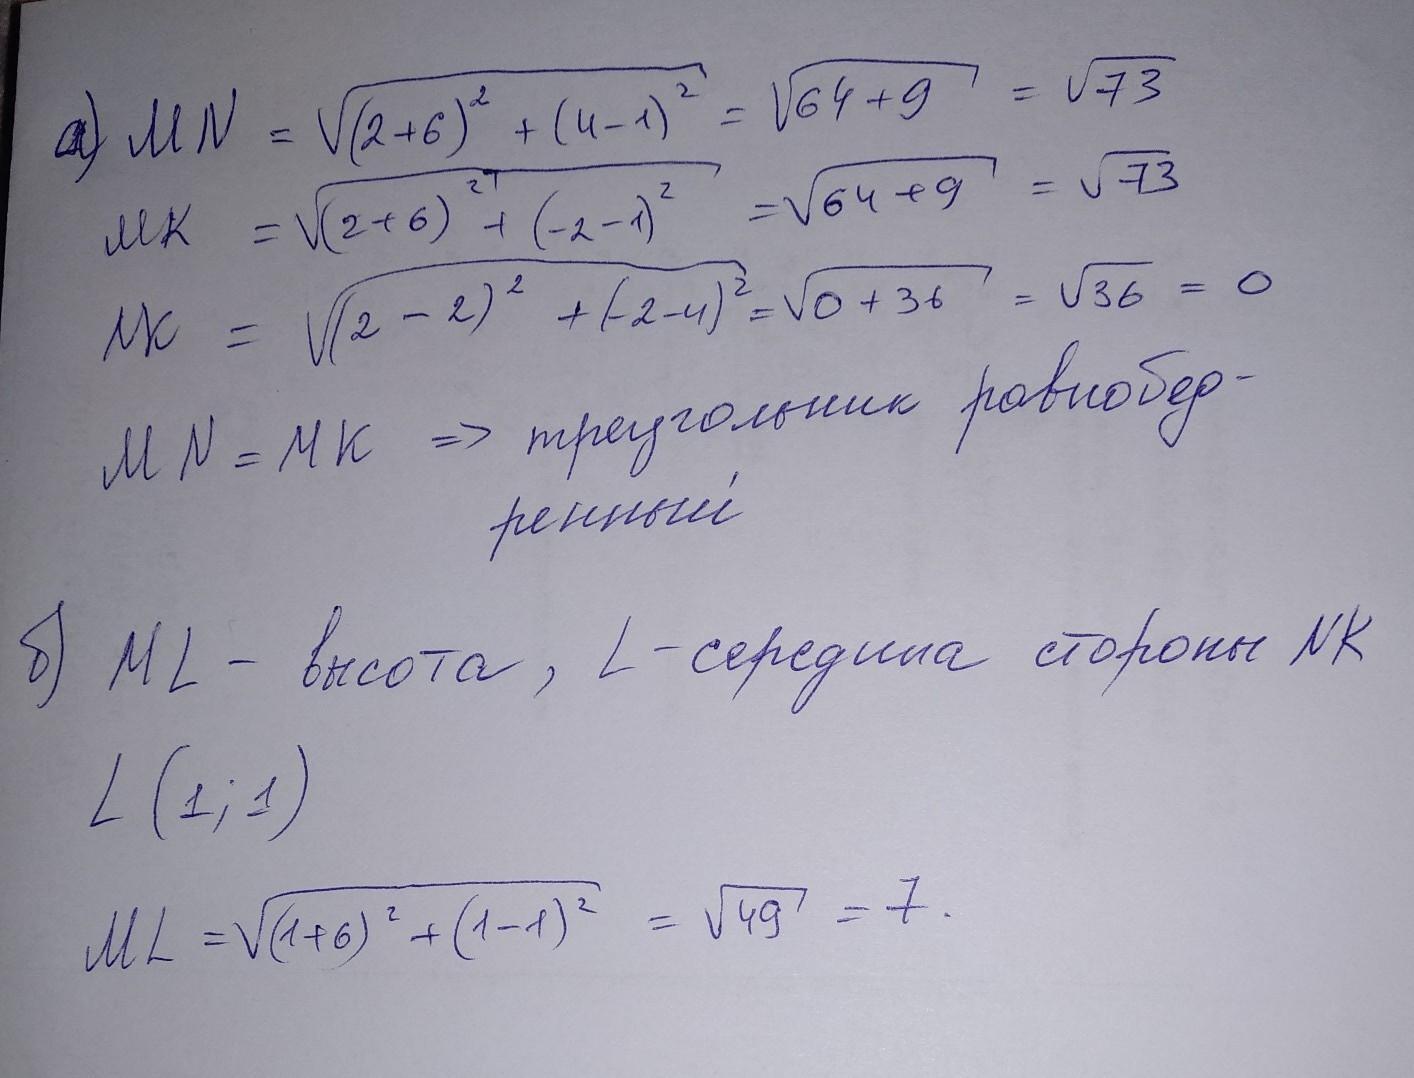 а) MN = √(2+6)² + (4-1)² = √64+9 = √73
MK = √(2+6)² + (-2-1)² = √64+9 = √73
NK = √(2-2)² + (-2-4)² = √0+36 = √36 = 0
MN = MK => треугольник равнобед-
ренный
б) ML - высота, L - середина стороны NK
L (1;1)
ML = √(1+6)² + (1-1)² = √49 = 7.